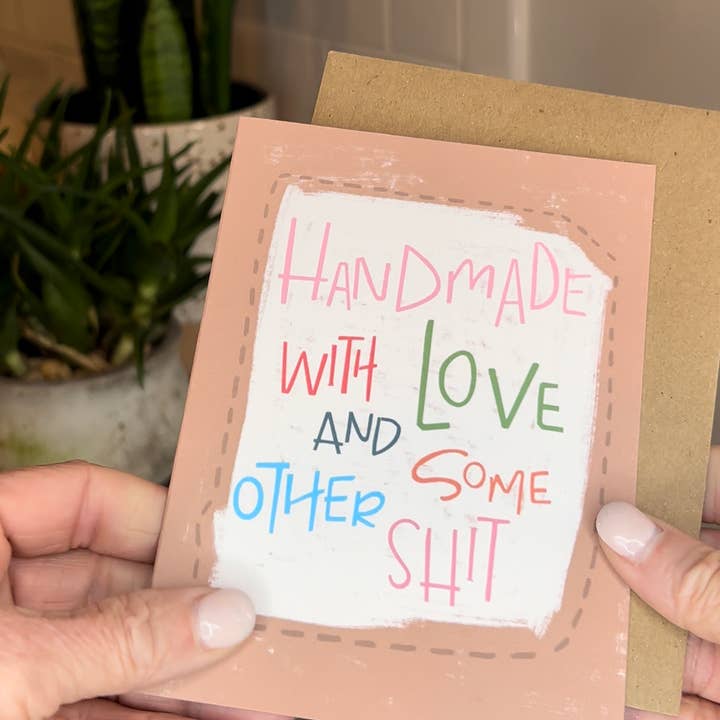 HANDMADE
WITH LOVE
AND SOME
OTHER SHIT